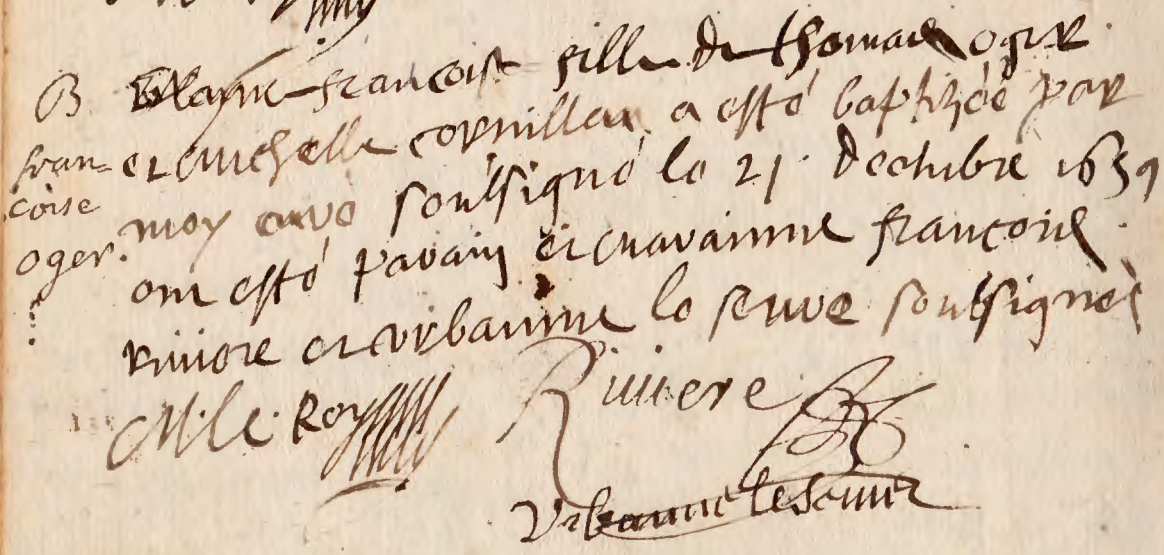 B
fran-
coise
oger.
françoise fille de thomas oger
et michelle cornilleau a esté baptizée par
moy curé soubsigné le 21. decembre 1639
ont esté parain et maraimne françois
riviere et urbaimne le feuve soubsignés
M. le. Roy
Riviere
Urbanne